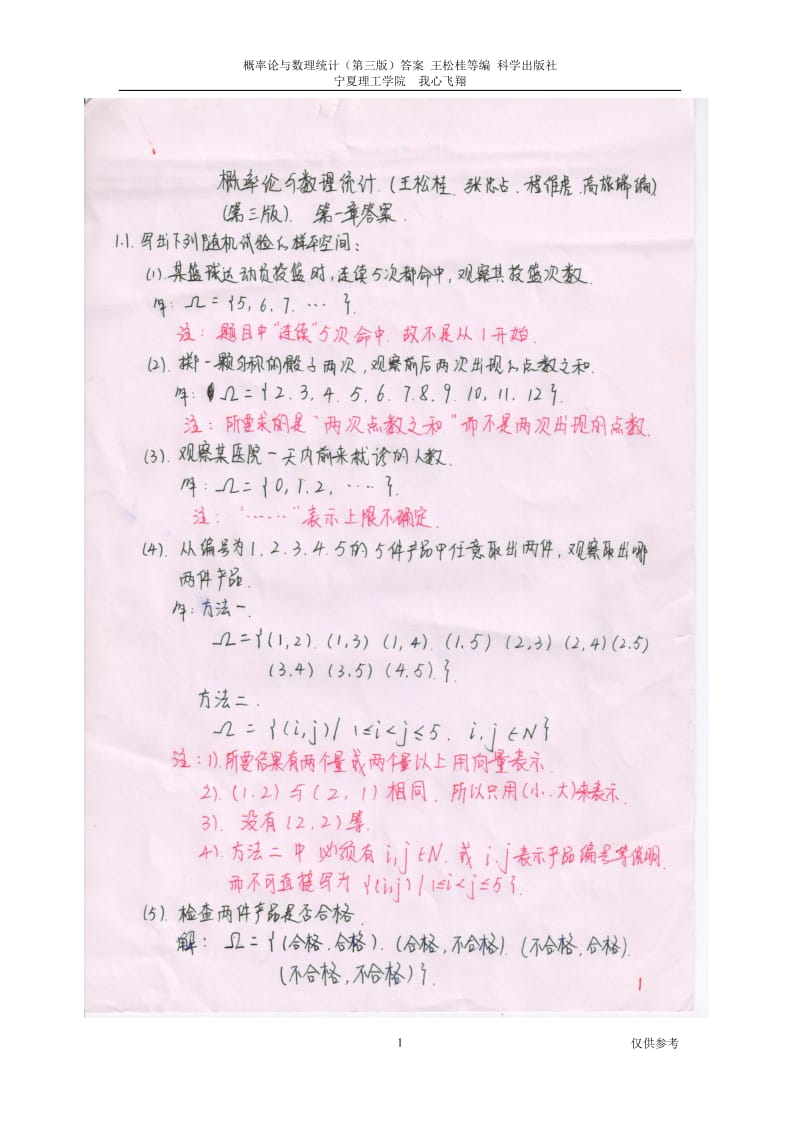 概率论与数理统计（第三版）答案 王松桂等编 科学出版社
宁夏理工学院 我心飞翔
概率论与数理统计.(王松桂、张忠占、程维虎、高旅端编)
(第三版). 第一章答案.
1.1. 写出下列随机试验的样本空间：
(1).某篮球运动员投篮时,连续5次都命中,观察其投篮次数.
解: Ω={5,6,7. … }.
注: 题目中"连续"5次命中. 故不是从1开始.
(2). 掷一颗匀称的骰子两次,观察前后两次出现的点数之和.
解: Ω={2.3.4.5.6.7.8.9.10.11.12}.
注: 所要求的是"两次点数之和"而不是两次出现的点数.
(3). 观察某医院一天内前来就诊的人数.
解: Ω={0,1.2, ….}.
注: "……"表示上限不确定.
(4). 从编号为1.2.3.4.5的5件产品中任意取出两件,观察取出哪
两件产品.
解: 方法一.
Ω={(1,2). (1,3) (1,4). (1.5) (2,3) (2,4)(2.5)
(3.4) (3.5) (4.5).}.
方法二.
Ω = {(i,j)| 1≤i<j≤5. i,j∈N}
注: 1).所要结果有两个量或两个量以上用向量表示.
2). (1.2)与(2,1)相同. 所以只用(小.大)来表示.
3). 没有(2,2)等.
4). 方法二中必须有i,j∈N. 或i.j表示产品编号等说明.
而不可直接写为 {(i,j)|1≤i<j≤5}.
(5). 检查两件产品是否合格.
解: Ω={(合格.合格). (合格,不合格). (不合格,合格).
(不合格,不合格)}.
1
1
仅供参考